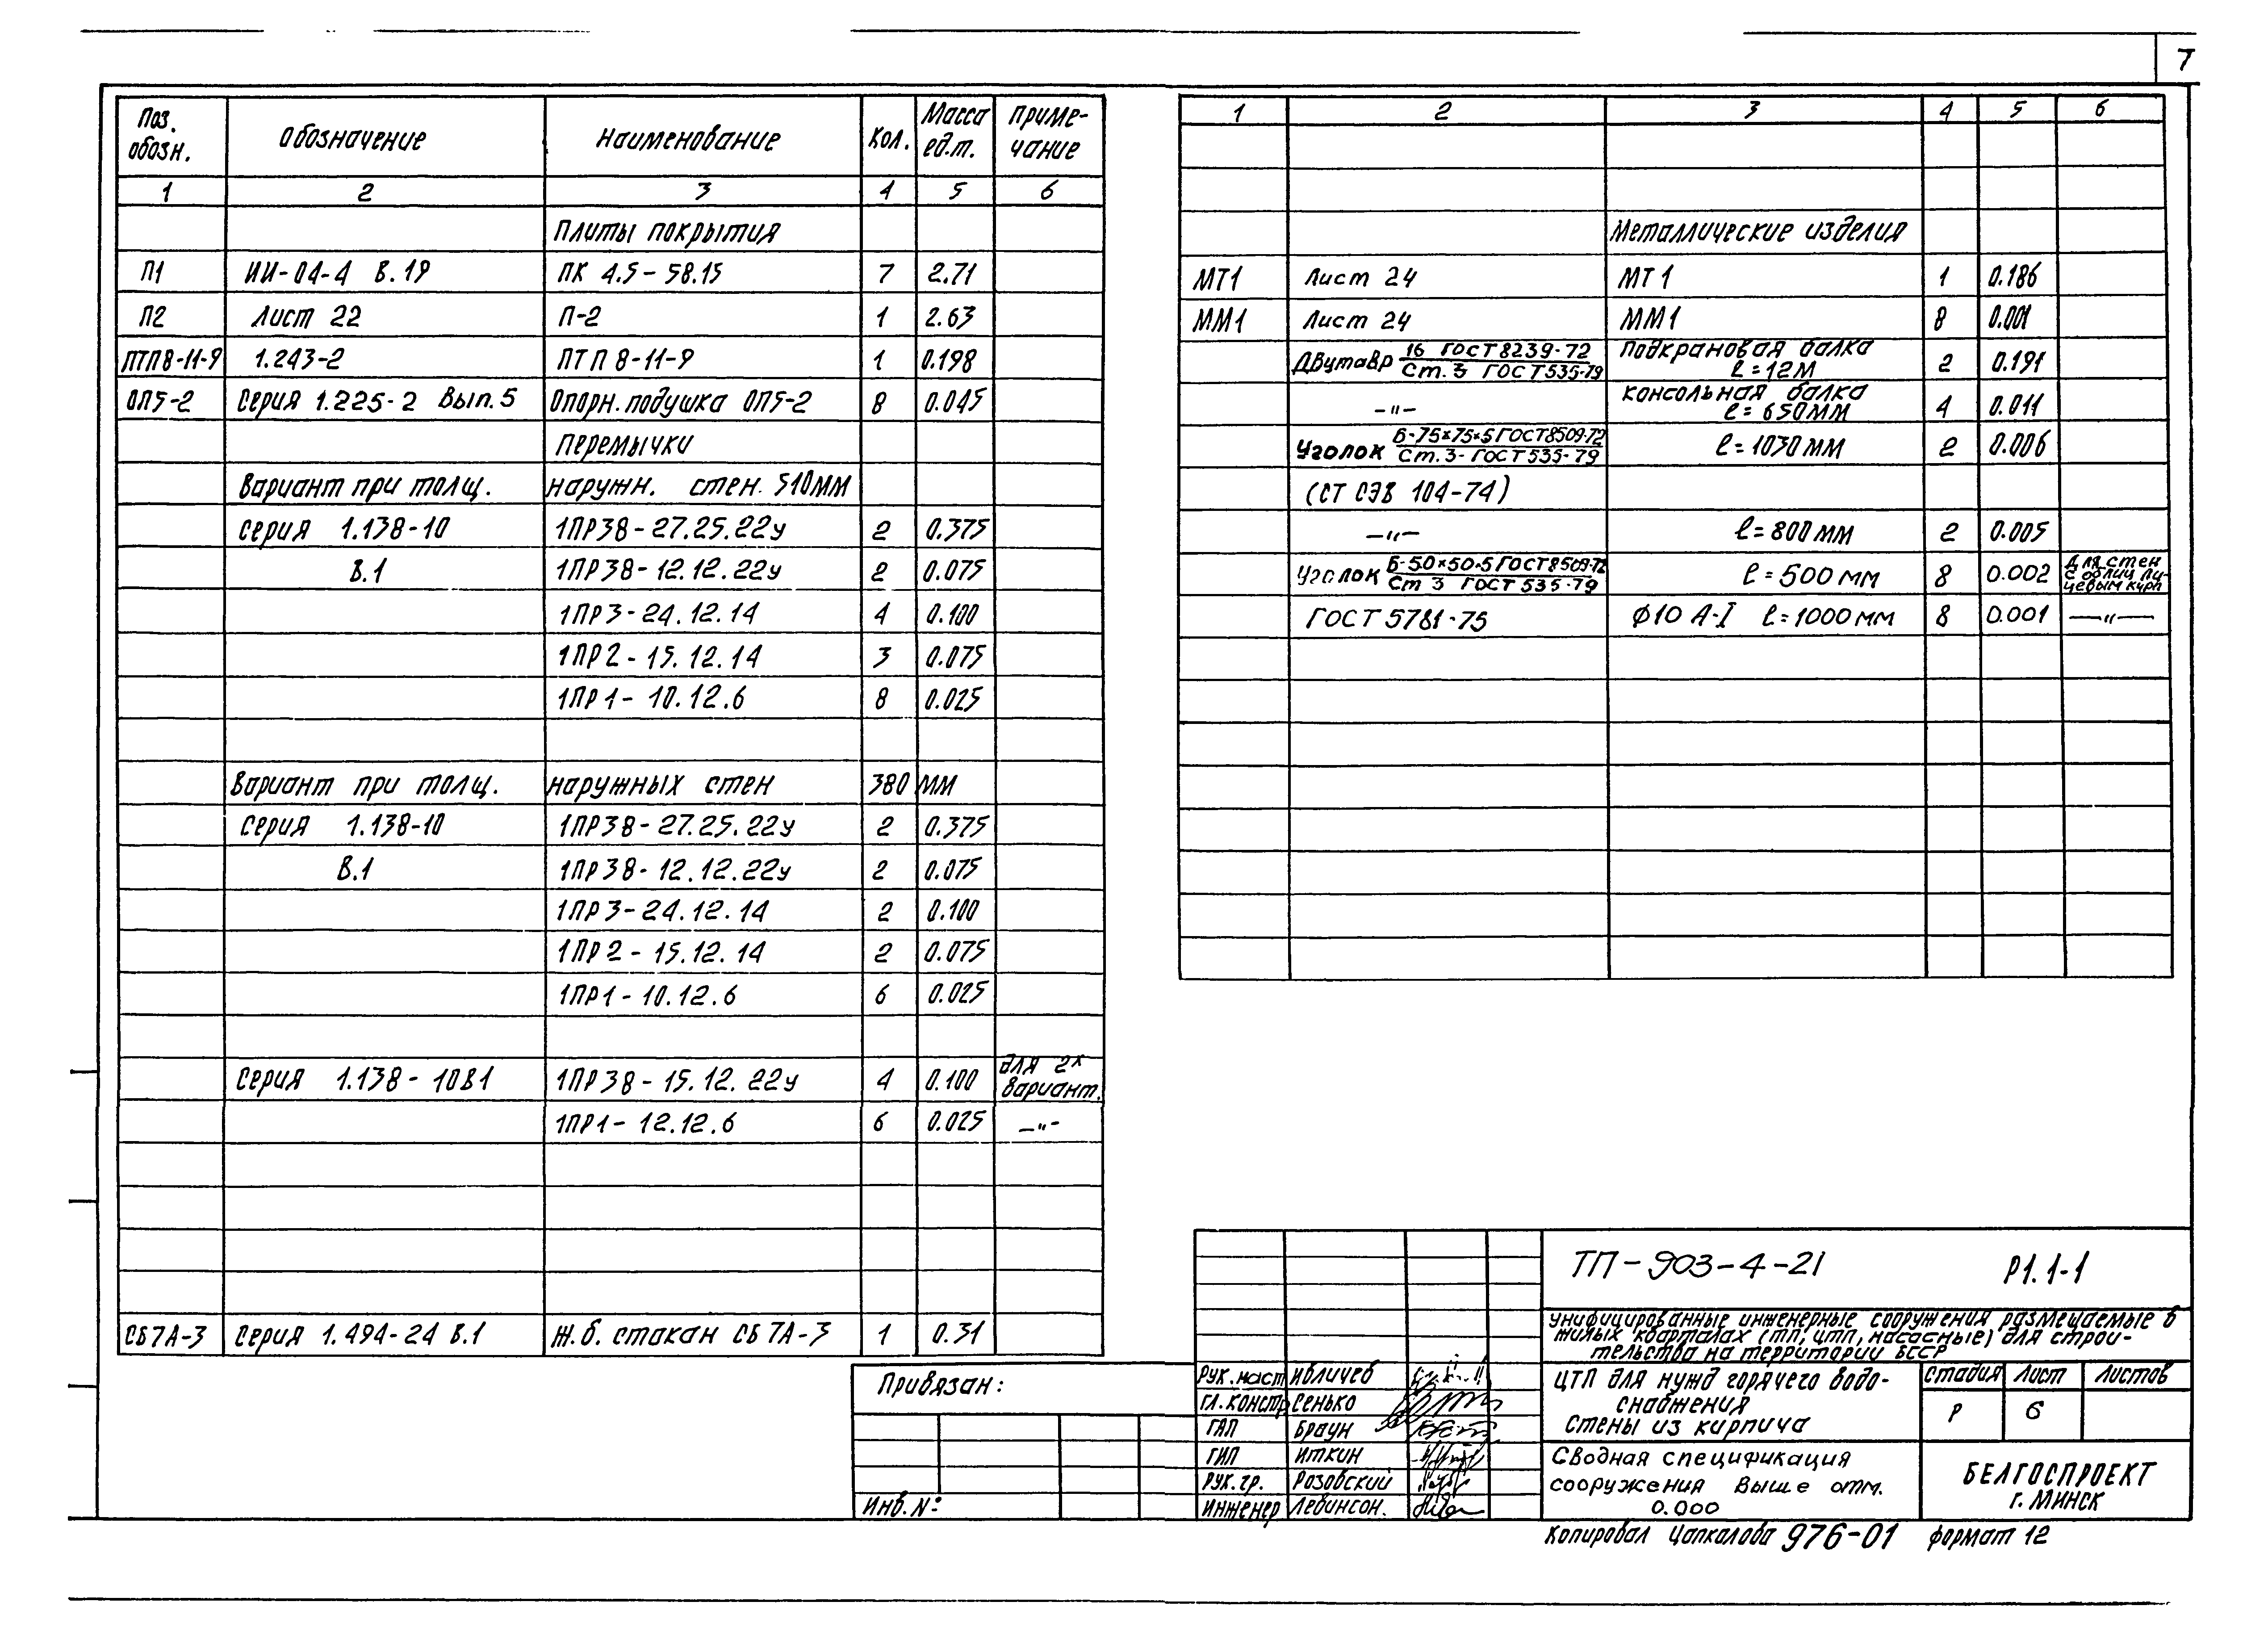 7
Поз. обозн. Обозначение Наименование Кол. Масса ед.т. Приме-чание
1 2 3 4 5 6
Плиты покрытия
П1 ИИ-04-4 В.19 ПК 4.5-58.15 7 2.71
П2 Лист 22 П-2 1 2.63
ПТП8-11-9 1.243-2 ПТП 8-11-9 1 0.198
ОП5-2 Серия 1.225-2 Вып.5 Опорн.подушка ОП5-2 8 0.045
Перемычки
Вариант при толщ. наружн. стен 510мм
Серия 1.138-10 1ПР38-27.25.22у 2 0.375
В.1 1ПР38-12.12.22у 2 0.075
1ПР3-24.12.14 4 0.100
1ПР2-15.12.14 3 0.075
1ПР1-10.12.6 8 0.025
Вариант при толщ. наружных стен 380 мм
Серия 1.138-10 1ПР38-27.25.22у 2 0.375
В.1 1ПР38-12.12.22у 2 0.075
1ПР3-24.12.14 2 0.100
1ПР2-15.12.14 2 0.075
1ПР1-10.12.6 6 0.025
Серия 1.138-10В1 1ПР38-15.12.22у 4 0.100 для 2х вариант.
1ПР1-12.12.6 6 0.025 -"-
СБ7А-3 Серия 1.494-24 В.1 Ж.б. стакан СБ7А-3 1 0.31
1 2 3 4 5 6
Металлические изделия
МТ1 Лист 24 МТ1 1 0.186
ММ1 Лист 24 ММ1 8 0.001
Двутавр 16 ГОСТ 8239-72 / Ст.3 ГОСТ 535-79 Подкрановая балка ℓ=12м 2 0.191
-"- консольная балка ℓ=650мм 4 0.011
Уголок Б-75×75×5 ГОСТ 8509-72 / Ст.3- ГОСТ 535-79 ℓ=1030мм 2 0.006
(СТ СЭВ 104-74)
-"- ℓ=800мм 2 0.005
Уголок Б-50×50×5 ГОСТ 8509-72 / Ст 3 ГОСТ 535-79 ℓ=500мм 8 0.002 Для стен с облиц ли-цевым кирп
ГОСТ 5781-75 Ф10 А-I ℓ=1000мм 8 0.001 -"-
ТП-903-4-21 Р1.1-1
Унифицированные инженерные сооружения размещаемые в
жилых кварталах (тп, цтп, насосные) для строи-
тельства на территории БССР
ЦТП для нужд горячего водо-
снабжения
Стены из кирпича
Стадия Лист Листов
Р 6
Сводная спецификация
сооружения выше отм.
0.000
БЕЛГОСПРОЕКТ
г. Минск
Рук.маст Ибличев
Гл.констр Сенько
ГАП Браун
ГИП Иткин
Рук.гр. Розовский
Инженер Левинсон.
Привязан:
Инв.N:
Копировал Цапкалова 976-01 формат 12